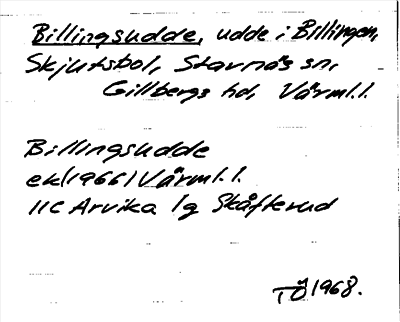 Billingsudde, udde i Billingen,
Skjutsbol, Stavnäs sn,
Gillbergs hd, Värml.l.
Billingsudde
ek(1966) Värml.l.
11C Arvika 1g Skåfterud
TÖ 1968.